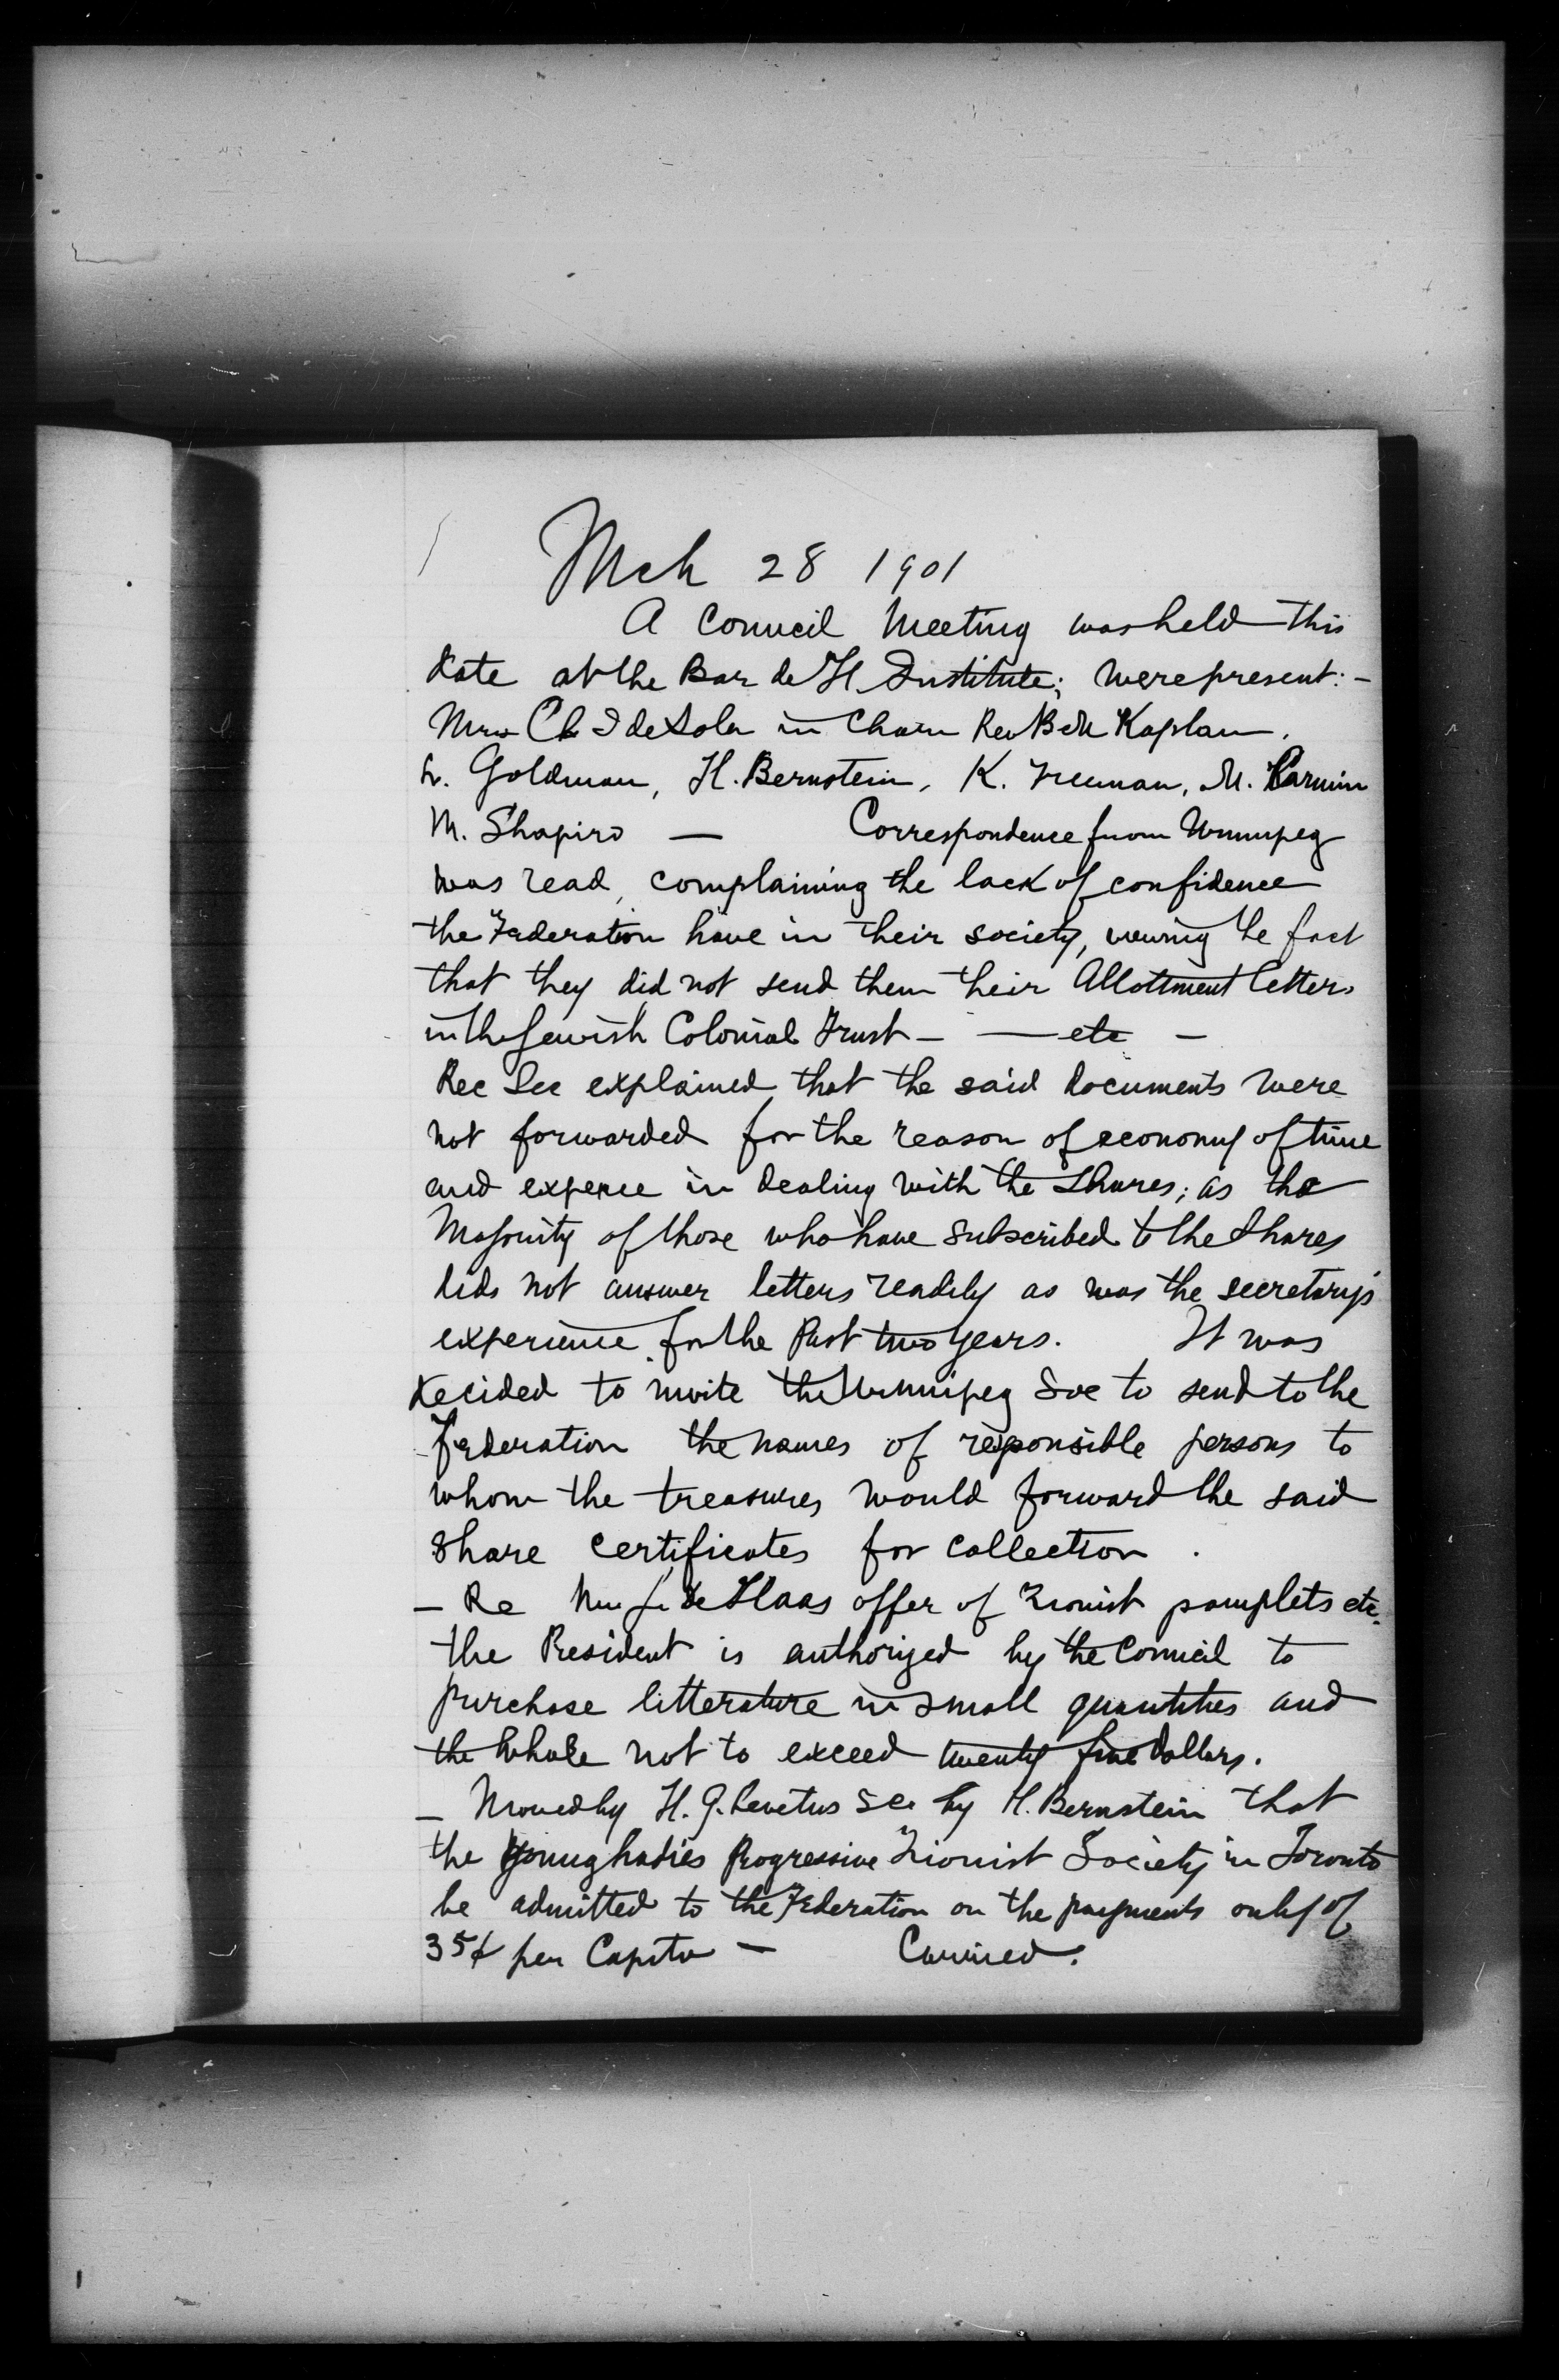 Mch 28 1901
A Council Meeting was held this
date at the Bar de H Institute; were present:-
Mrs Cl I de Sola in Chair Rev B M Kaplan.
L. Goldman, H. Bernstein, K. Freeman, M.
M. Shapiro — Correspondence from Winnipeg
was read, complaining the lack of confidence
the Federation have in their society, viewing the fact
that they did not send them their Allottment letters
in the Jewish Colonial Trust — — etc —
Rec Sec explained that the said documents were
not forwarded for the reason of economy of time
and expence in dealing with the Shares; as the
Majority of those who have subscribed to the Shares
dids not answer letters readily as was the secretary's
experience for the Past two years. It was
decided to invite the Winnipeg Soc to send to the
Federation the names of responsible persons to
whom the treasures would forward the said
Share certificates for collection.
— Re Mr J. de Haas offer of Zionist pamplets etc.
the President is authorized by the Council to
purchase litterature in small quantities and
the whole not to exceed twenty five Dollars.
— Moved by H. G. Levetus Sec by H. Bernstein that
the Young Ladies Progressive Zionist Society in Toronto
be admitted to the Federation on the payments only of
35¢ per Capita — Carried.